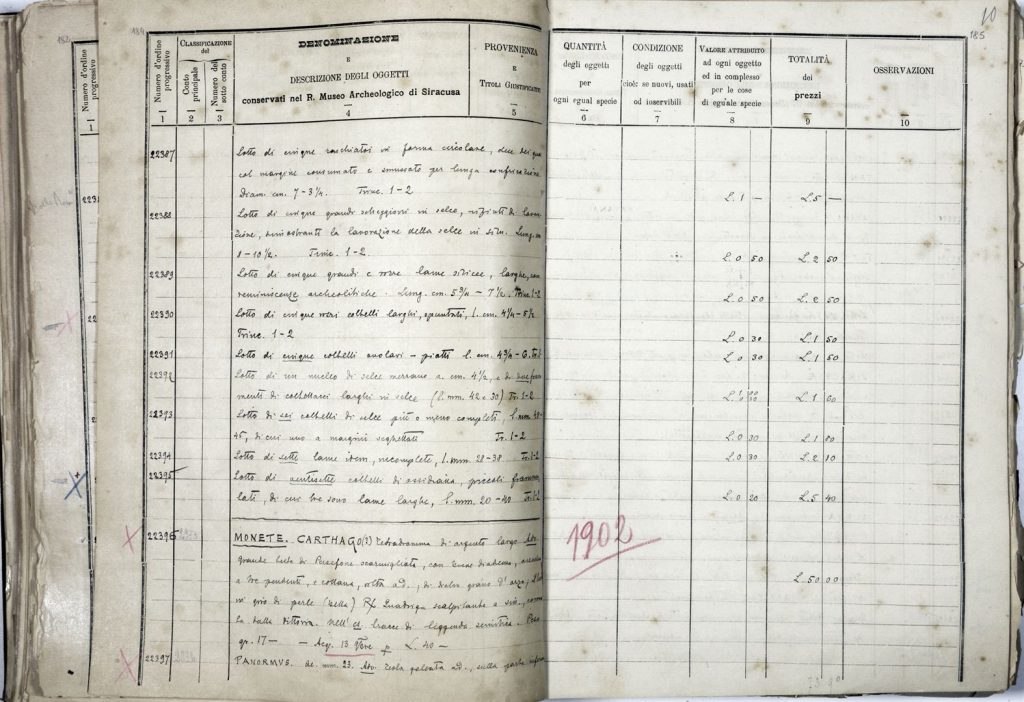 182
184
10
185
Numero d'ordine progressivo
1
Numero d'ordine progressivo
1
CLASSIFICAZIONE
del
Conto principale
2
Numero del sotto conto
3
DENOMINAZIONE
E
DESCRIZIONE DEGLI OGGETTI
conservati nel R. Museo Archeologico di Siracusa
4
PROVENIENZA
E
TITOLI GIUSTIFICATIVI
5
QUANTITÀ
degli oggetti
per
ogni egual specie
6
CONDIZIONE
degli oggetti
cioè: se nuovi, usati
od inservibili
7
VALORE ATTRIBUITO
ad ogni oggetto
ed in complesso
per le cose
di eguale specie
8
TOTALITÀ
dei
prezzi
9
OSSERVAZIONI
10
22387 Lotto di cinque raschiatoi in forma circolare, due dei quali
col margine consumato e smussato per lunga confricazione.
Diam. cm. 7-3¼. Trinc. 1-2 L. 1 — L. 5 —
22388 Lotto di cinque grandi scheggioni in selce, rifiuti di lavora
zione, dimostranti la lavorazione della selce in situ. Lung. cm
8-10½. Trinc. 1-2. L. 0 50 L. 2 50
22389 Lotto di cinque grandi e rozze lame silicee, larghe, con
reminiscenze archeolitiche. Lung. cm. 5¾ - 7½. Trinc. 1-2 L. 0 50 L. 2 50
22390 Lotto di cinque rozzi coltelli larghi, spuntati, l. cm. 4¼-5½
Trinc. 1-2 L. 0 30 L. 1 50
22391 Lotto di cinque coltelli ovolari - piatti l. cm. 4¾-6. Tr. 1-2 L. 0 30 L. 1 50
22392 Lotto di un nucleo di selce mezzano a. cm. 4½, e di due fram
menti di coltellacci larghi in selce (l. mm. 42 e 30) Tr. 1-2 L. 1 00
22393 Lotto di sei coltelli di selce più o meno completi, l. mm. 48-
45, di cui uno a margini seghettati Tr. 1-2 L. 0 30 L. 1 80
22394 Lotto di sette lame idem, incomplete, l. mm. 28-38. Tr. 1-2 L. 0 30 L. 2 10
22395 Lotto di ventisette coltelli di ossidiana, piccoli frammen
tati, di cui tre sono lame larghe, l. mm. 20-40 Tr. 1-2 L. 0 20 L. 5 40
1902
22396 MONETE. CARTHAGO(?) Tetradramma di argento largo Adv.
grande testa di Persefone scarmigliata, con diadema,
a tre pendenti, e collana, volta a d., di dietro grano d'orzo;
in giro di perle (bella) R/. Quadriga scalpitante a sin.,
ta dalla Vittoria. Nell' tracce di leggenda semitica. Peso
gr. 17— — Acq. 13 9bre p. L. 40— L. 50 00
22397 PANORMUS. Ae. mm. 23. Adv. testa galeata a d., sulla parte